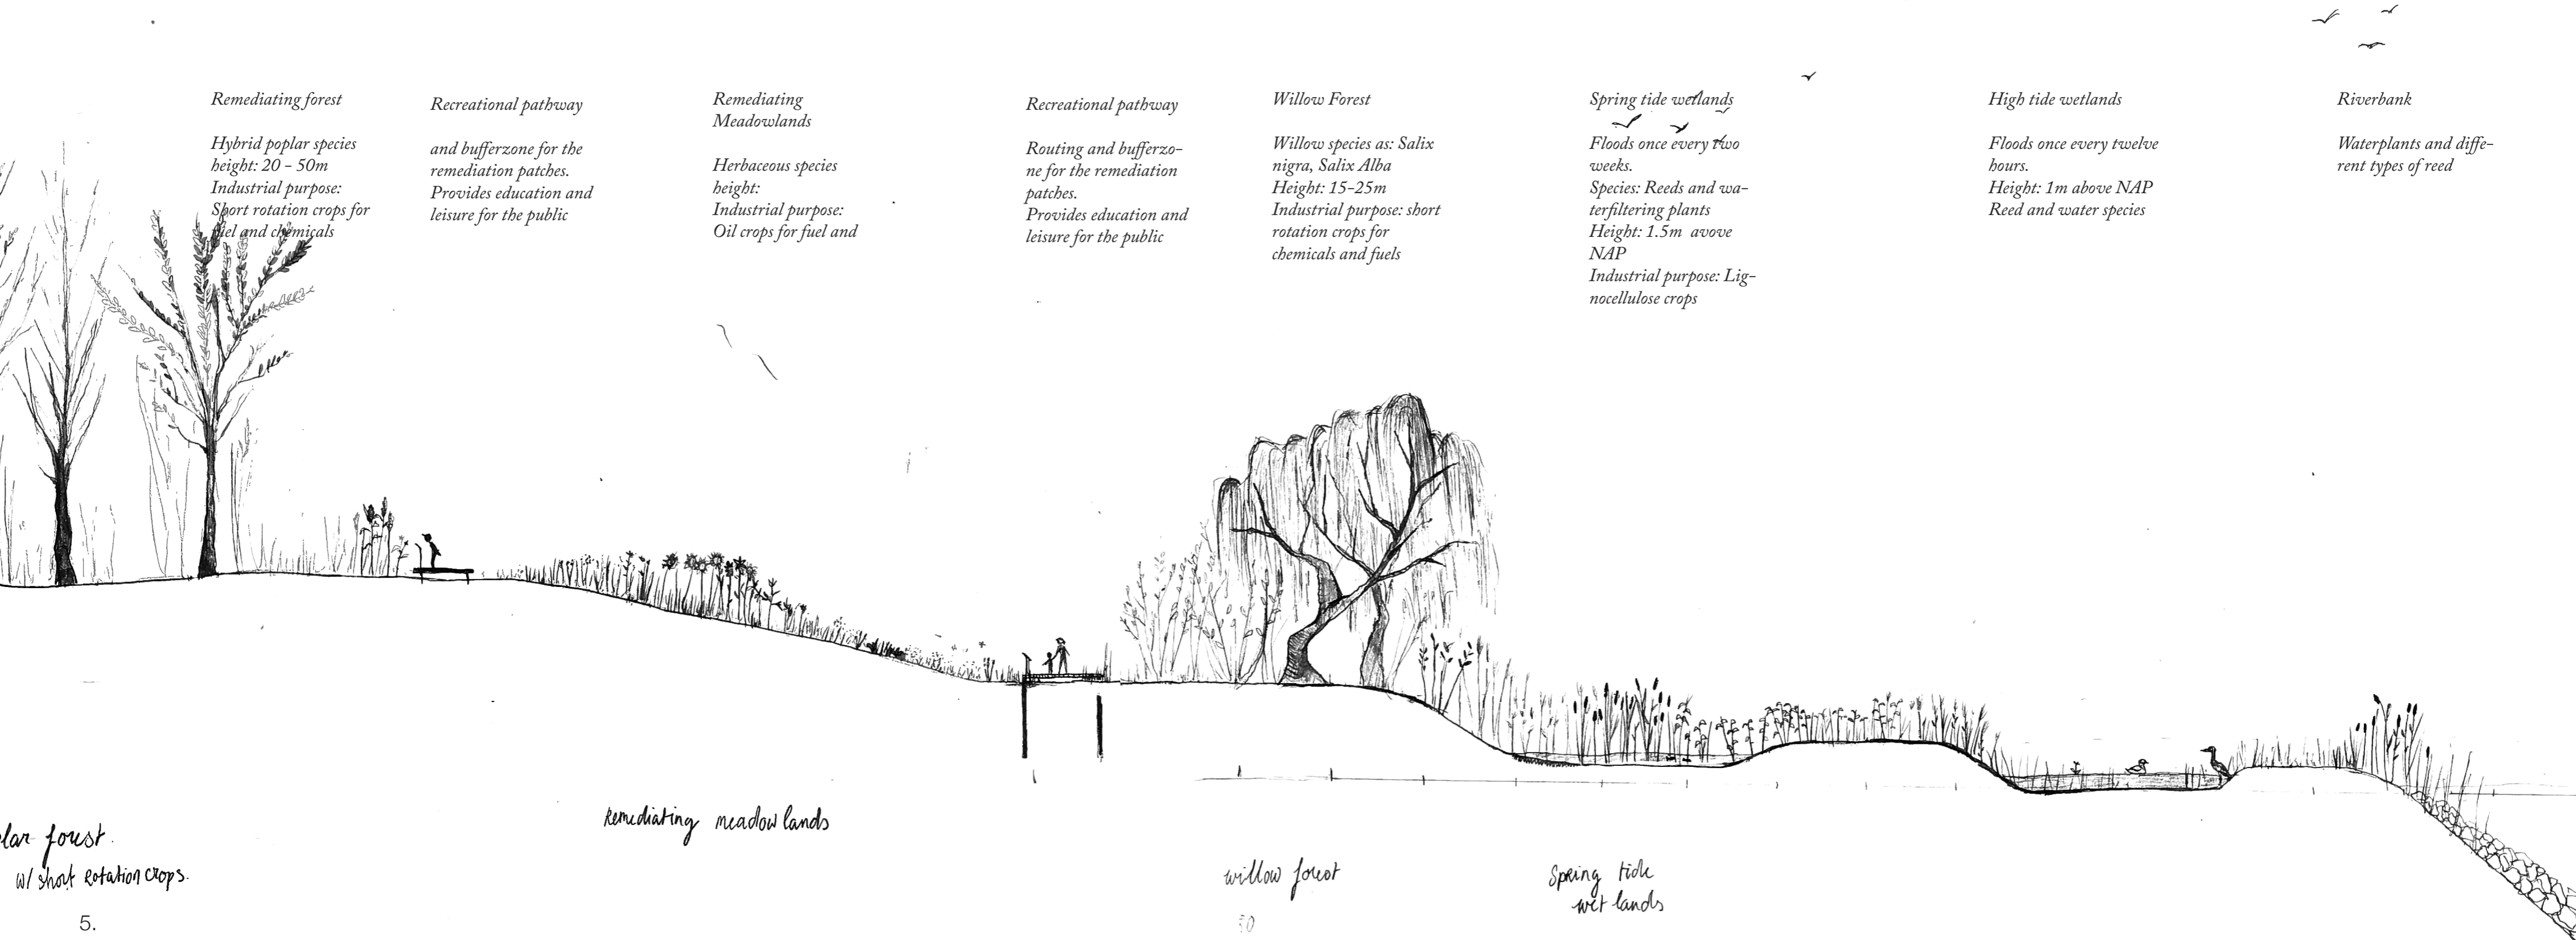 Remediating forest
Hybrid poplar species
height: 20 - 50m
Industrial purpose:
Short rotation crops for
fuel and chemicals
Recreational pathway
and bufferzone for the
remediation patches.
Provides education and
leisure for the public
Remediating
Meadowlands
Herbaceous species
height:
Industrial purpose:
Oil crops for fuel and
Recreational pathway
Routing and bufferzo-
ne for the remediation
patches.
Provides education and
leisure for the public
Willow Forest
Willow species as: Salix
nigra, Salix Alba
Height: 15-25m
Industrial purpose: short
rotation crops for
chemicals and fuels
Spring tide wetlands
Floods once every two
weeks.
Species: Reeds and wa-
terfiltering plants
Height: 1.5m avove
NAP
Industrial purpose: Lig-
nocellulose crops
High tide wetlands
Floods once every twelve
hours.
Height: 1m above NAP
Reed and water species
Riverbank
Waterplants and diffe-
rent types of reed
lar forest.
w/ short rotation crops.
5.
Remediating meadowlands
willow forest
30
Spring tide
wetlands